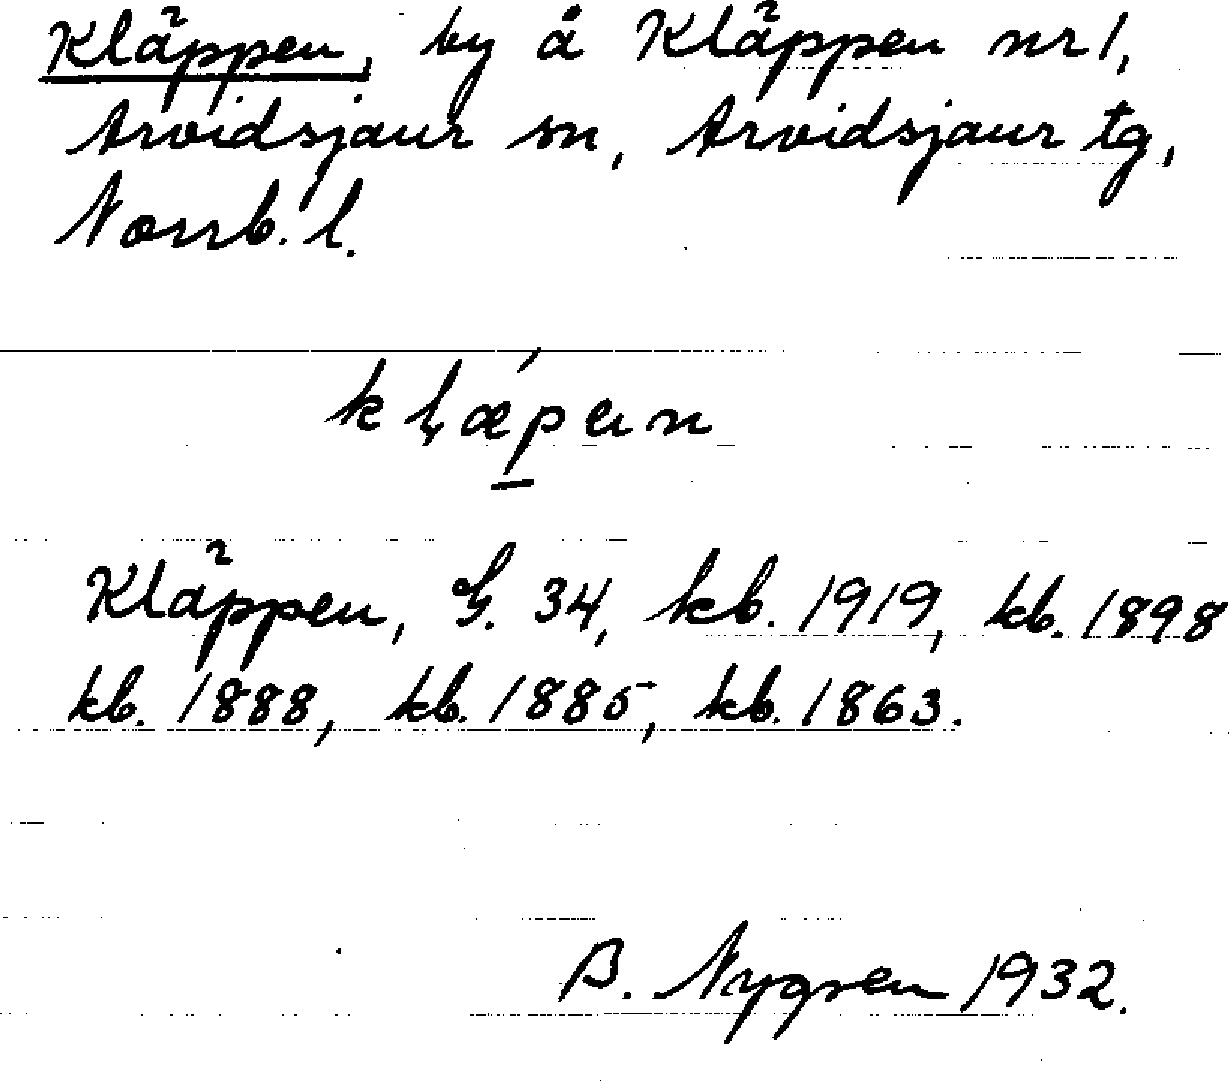 Kläppen, by å Kläppen nr 1,
Arvidsjaur sn, Arvidsjaur tg,
Norrb. l.
Kläppen, G. 34, kb. 1919, kb. 1898
kb. 1888, kb. 1885, kb. 1863.
B. Nygren 1932.